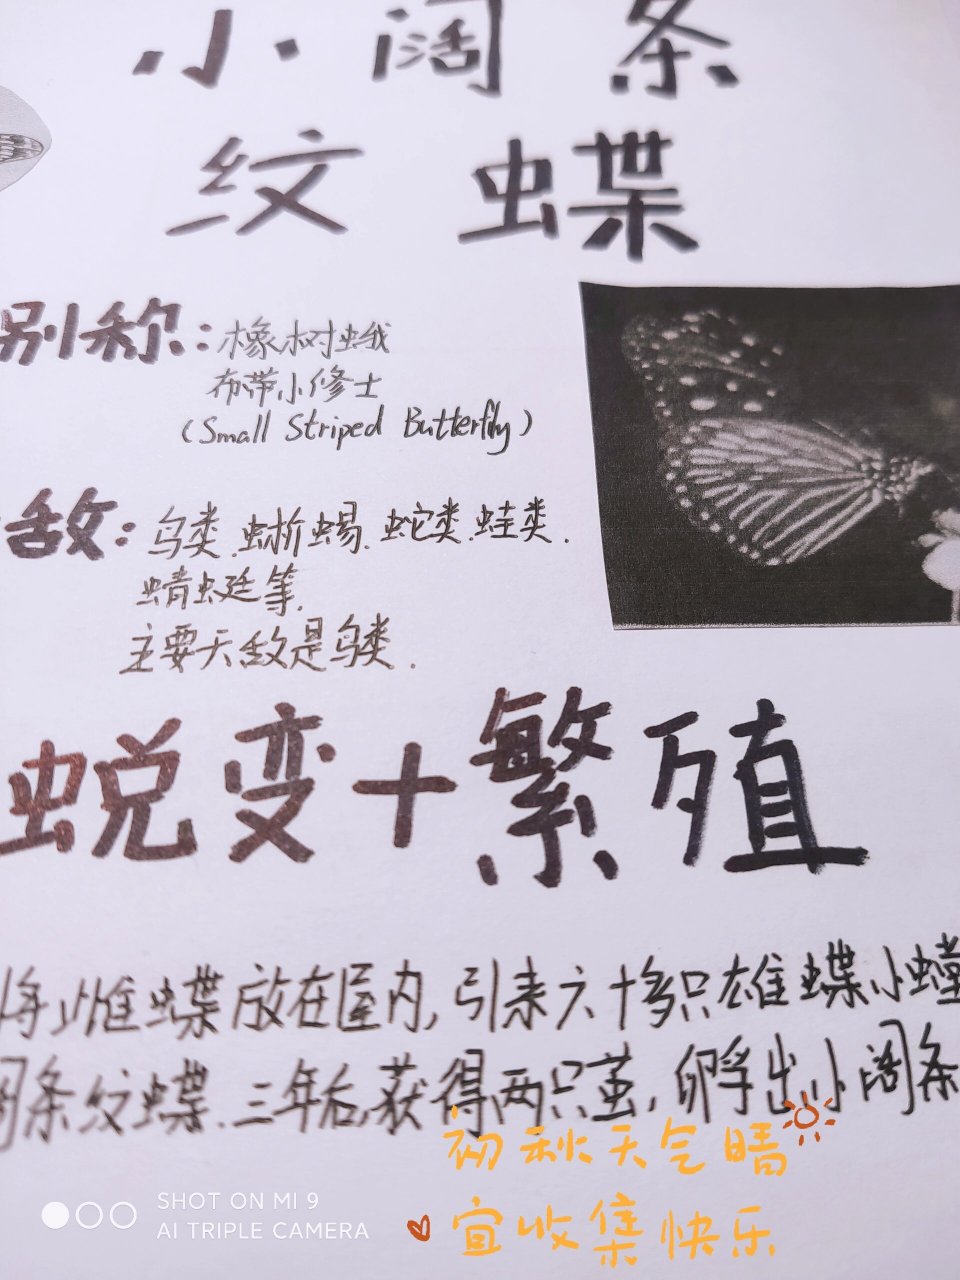 小阔条
纹蝶
别称：橡树蛾
布带小修士
（Small Striped Butterfly）
敌：鸟类．蜥蜴．蛇类．蛙类．
蜻蜓等．
主要天敌是鸟类．
蜕变+繁殖
将雌蝶放在屋内，引来六十多只雄蝶小
阔条纹蝶．三年后，获得两只茧，孵出小阔条
初秋天气晴
宜收集快乐
SHOT ON MI 9
AI TRIPLE CAMERA